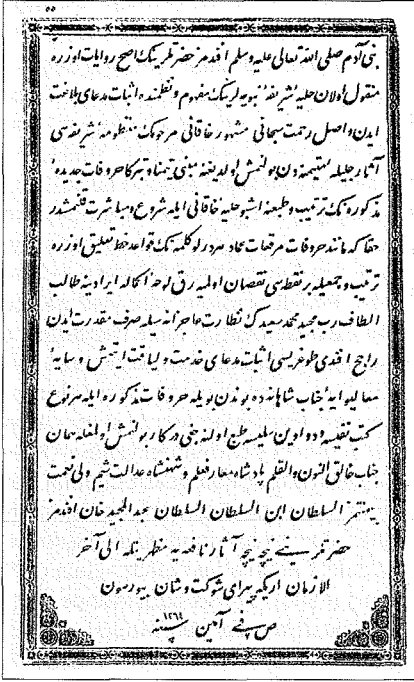 ٥٥
بنى آدم صلى الله تعالى عليه وسلم افندمز حضرتلرينك اصح روايات اوزره
منقول اولان حليهٔ شريفهٔ نبويه لرينك مفهوم ونظمنده اثبات مدعاى بلاغت
ايدن واصل رحمت سبحانى مشهور خاقانى مرحومك منظومهٔ شريفه‌سى
آثار جليلهٔ متيمنه‌دن بولنمش اولديغنه مبنى تيمنا وتبركا حروفات جديدهٔ
مذكوره‌نك ترتيب وطبعنه اشبو حليهٔ خاقانى ايله شروع ومباشرت قلنمشدر
حقا كه مانند حروفات مرقعات عماد هر در لو كلمه‌نك قواعد خط تعليق اوزره
ترتيب وجمعيله بر نقطه‌سى نقصان اولميه‌رق لوحهٔ اكماله ايرادينه طالب
الطاف رب مجيد محمد سعيدك نظارت عاجزانه‌سيله صرف مقدرت ايدن
راجح افندى طوغريسى اثبات مدعاى خدمت ولياقت ايتمش وسايهٔ
معاليوايهٔ جناب شاهانه‌ده بوندن بويله حروفات مذكوره ايله هر نوع
كتب نفيسه ودواوين سليسه طبع اولنه‌جغى دركار بولنمش اولمغله همان
جناب خالق النون والقلم پادشاه معارفعلم وشهنشاه عدالت شيم ولى نعمت
بيمنتمز السلطان ابن السلطان السلطان عبد المجيد خان افندمز
حضرتلرينى نيجه نيجه آثار نافعه‌يه مظهريتله الى آخر
الازمان اريكه‌پيراى شوكت وشان بيورسون
آمين سنه ١٢٦٤